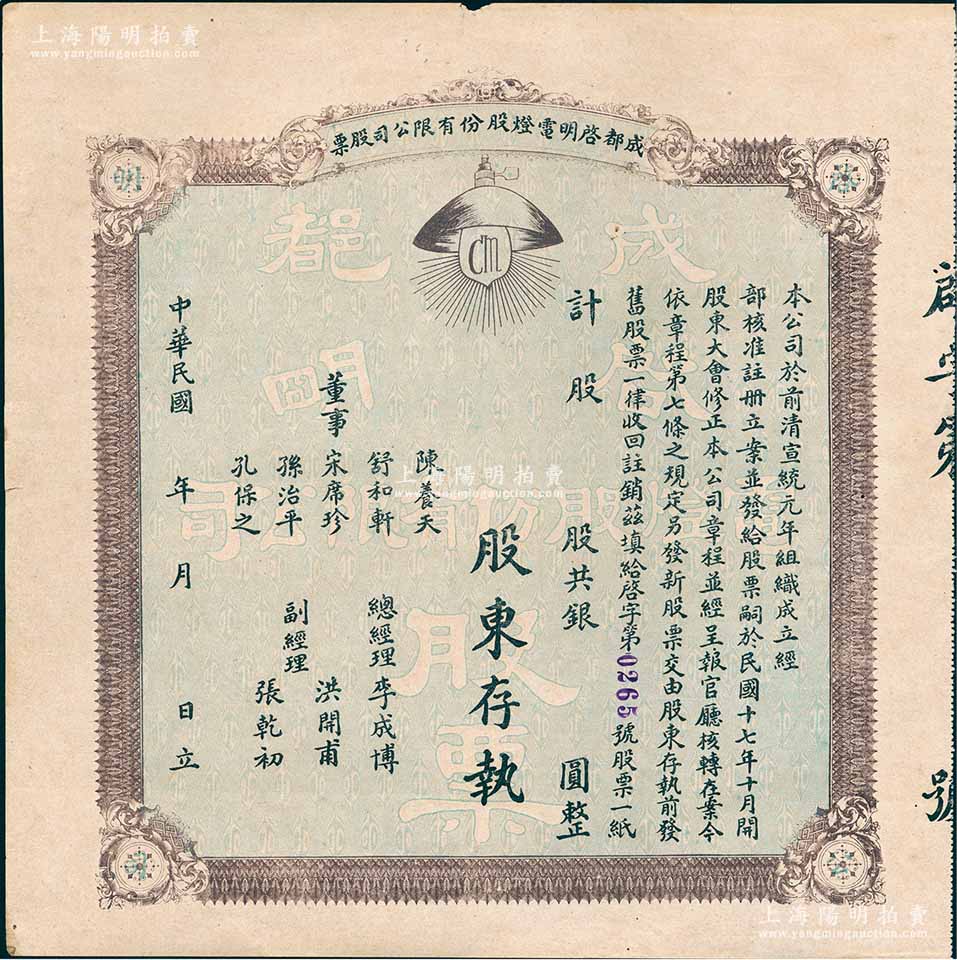 上海陽明拍賣
www.yangmingauction.com
成都啓明電燈股份有限公司股票
啓
明
CM
成都
啓明
電燈股份有限公司
股票
本公司於前清宣統元年組織成立經
部核准註册立案並發給股票嗣於民國十七年十月開
股東大會修正本公司章程並經呈報官廳核轉在案今
依章程第七條之規定另發新股票交由股東存執前發
舊股票一律收回註銷茲填給啓字第0265號股票一紙
計 股 股共銀 圓整
股東存執
董事
陳養天
舒和軒
宋席珍
孫治平
孔保之
總經理 李成博
副經理
洪開甫
張乾初
中華民國 年 月 日立
公
司
啓字第 號
上海陽明拍賣
www.yangmingauction.com
上海陽明拍賣
www.yangmingauction.com